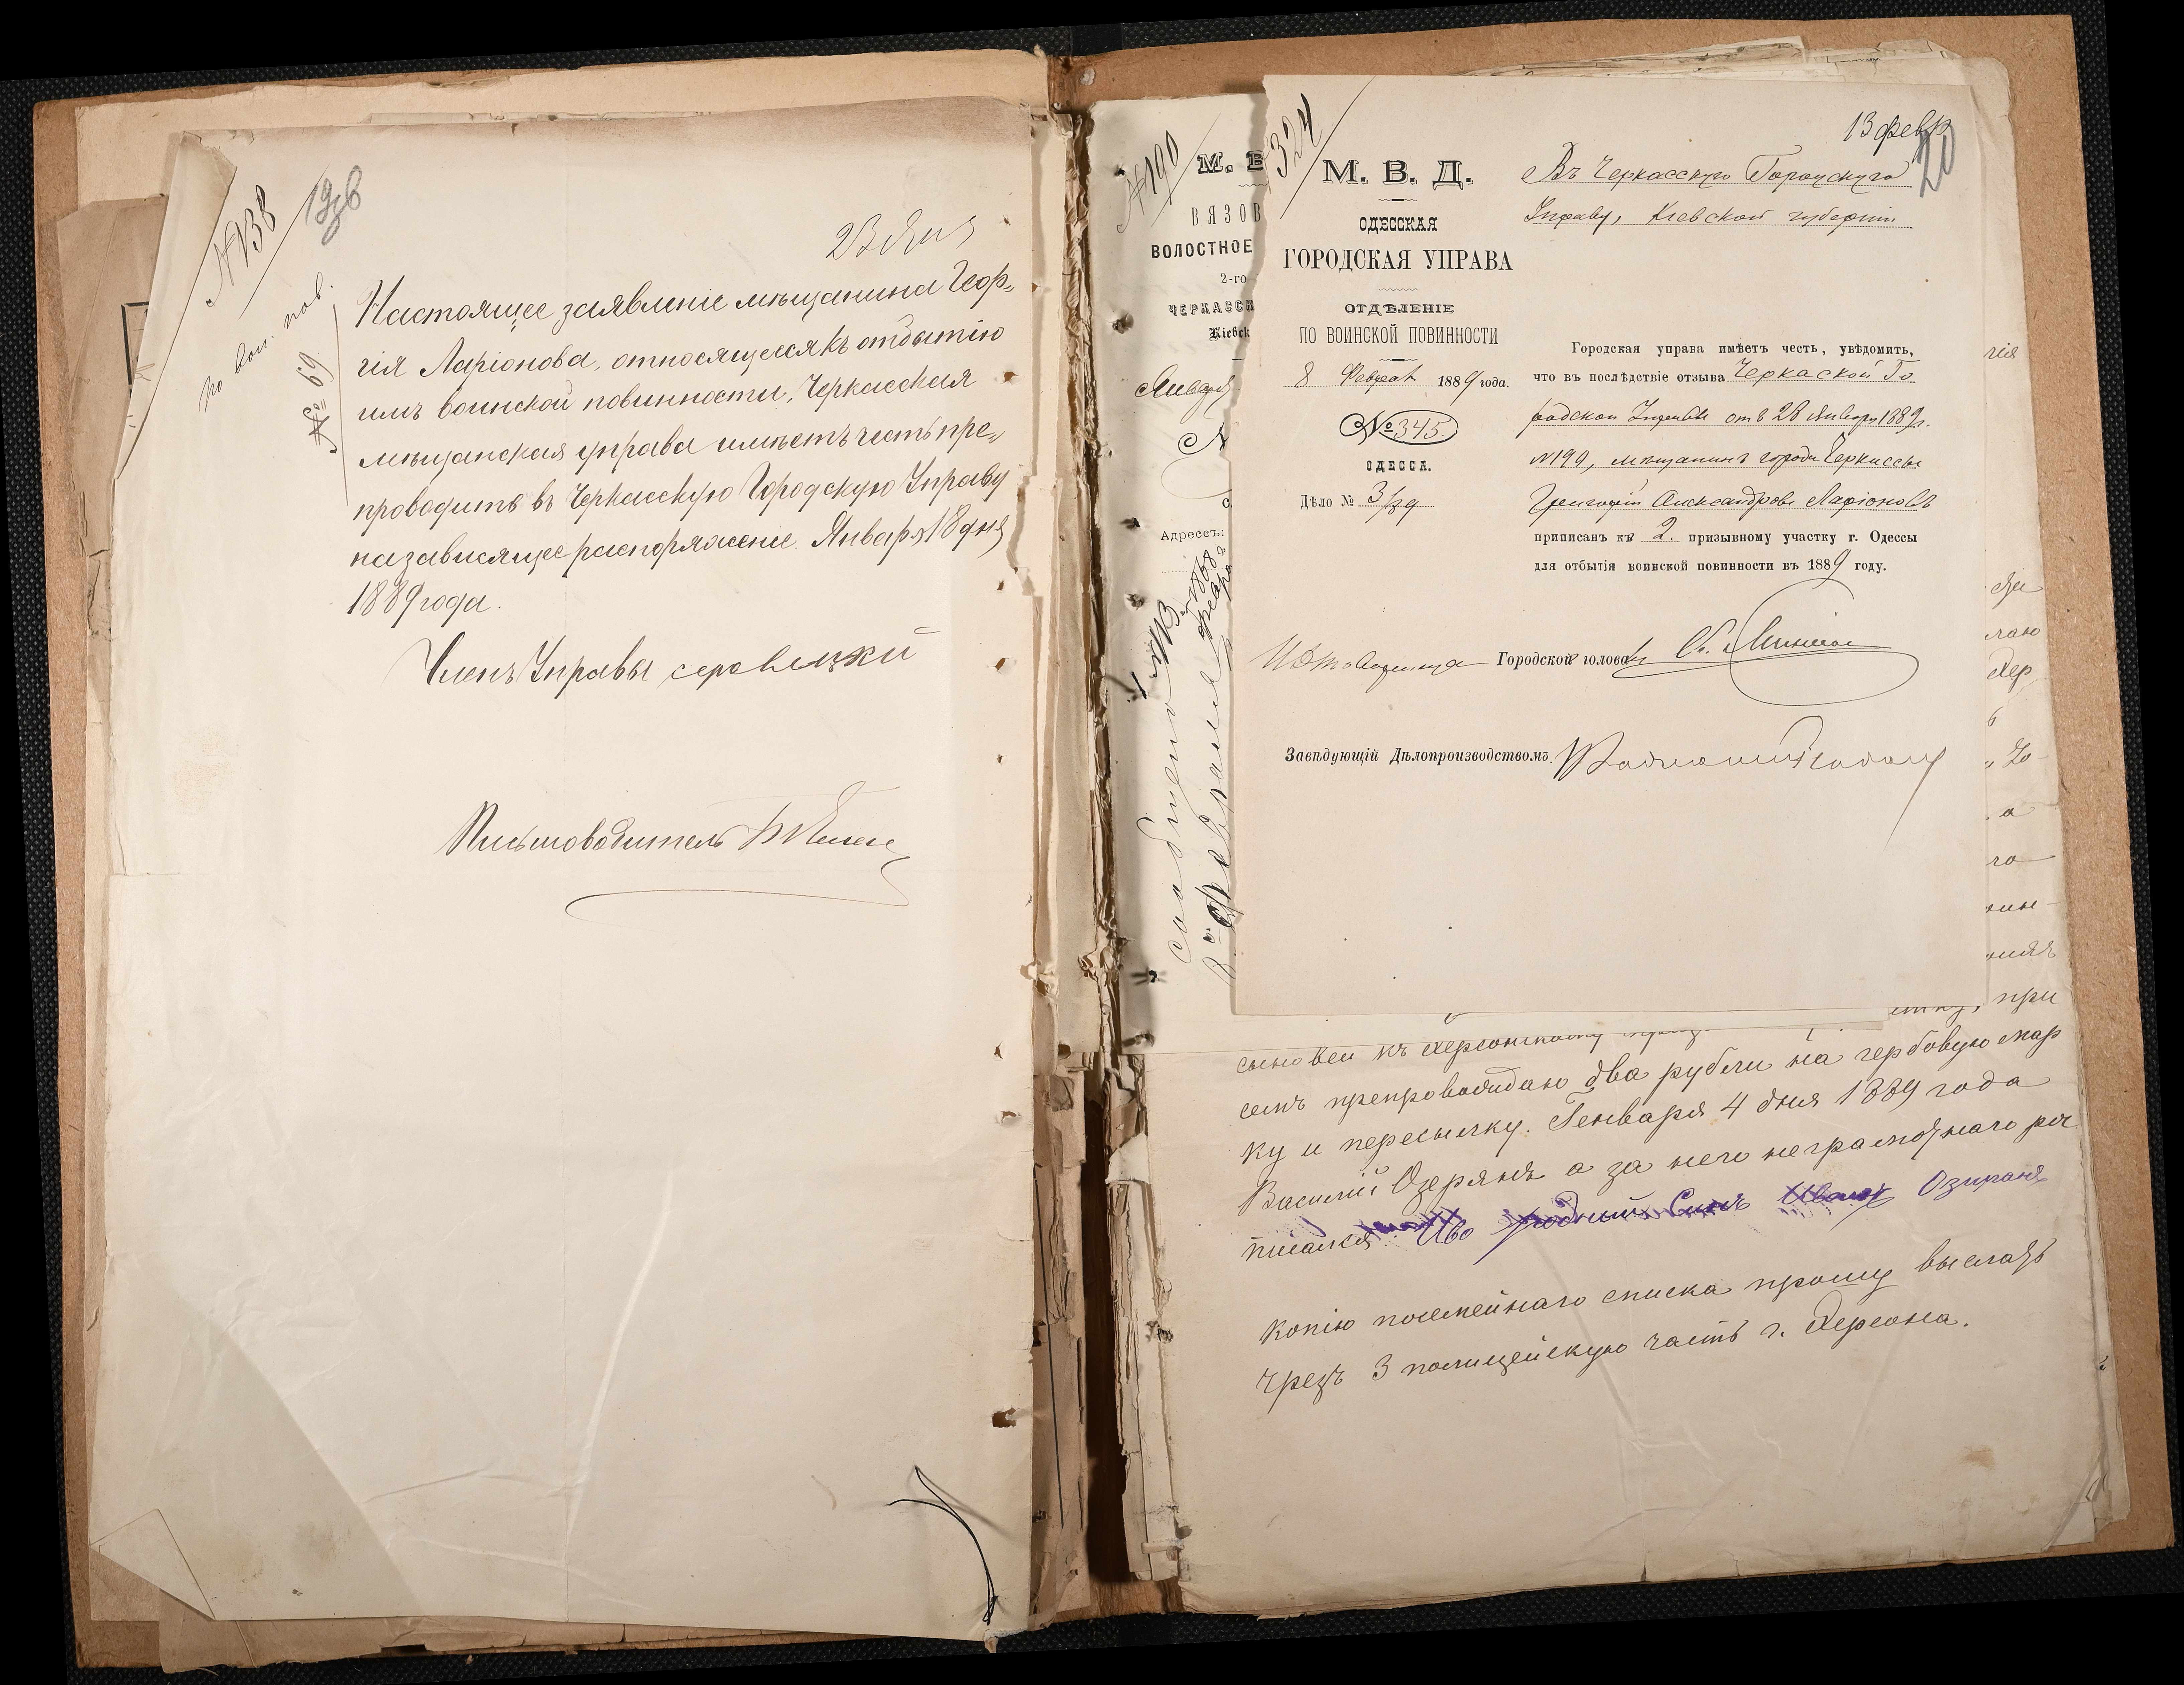 № 138
19зв
по вои. пов.
№ 69
23 Янв
Настоящее заявленіе мѣщанина Геор-
гія Ларіонова, относящееся къ отбытію
имъ воинской повинности, Черкасская
мѣщанская управа имѣетъ честь пре-
проводить въ Черкасскую Городскую Управу
на зависящее распоряженіе. Января 18 дня
1889 года.
Членъ Управы
Письмоводитель
№ 190
М. В
ВЯЗОВ
ВОЛОСТНОЕ
2-го
ЧЕРКАССК
Кіевск
Январ
N
С
Адрессъ:
сообщено
февраля
324
13 февр
20
М. В. Д.
ОДЕССКАЯ
ГОРОДСКАЯ УПРАВА
ОТДѢЛЕНІЕ
ПО ВОИНСКОЙ ПОВИННОСТИ
8 Феврал 1889 года.
№ 345.
ОДЕССА.
Дѣло № 3/89
Въ Черкасскую Городскую
Управу, Кіевской губерніи
Городская управа имѣетъ честь, увѣдомить,
что въ послѣдствіе отзыва Черкаской Го
родской Управы отъ 28 Января 1889 г.
№ 190, мѣщанинъ города Черкассы
Григорій Александровъ Ларіоновъ
приписанъ къ 2. призывному участку г. Одессы
для отбытія воинской повинности въ 1889 году.
Городской голова
Завѣдующій Дѣлопроизводствомъ.
гія
лаю
Хер
а
го
при
сыновей къ Херсонскому
семъ препровождаю два рубли на гербовую мар
ку и пересылку. Генваря 4 дня 1889 года
Василій Озерянъ а за него неграмотнаго рос
писался Иво родный Сынъ Иванъ Озиранъ
копію посемейнаго списка прошу выслать
чрезъ 3 полицейскую часть г. Херсона.